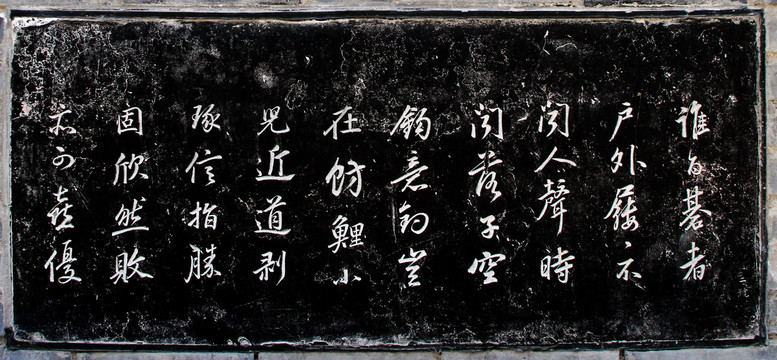 誰与棊者
户外屨二不
聞人聲時
聞落子空
鈎意釣豈
在魴鯉小
兒近道剥
琢信指勝
固欣然敗
亦可喜優